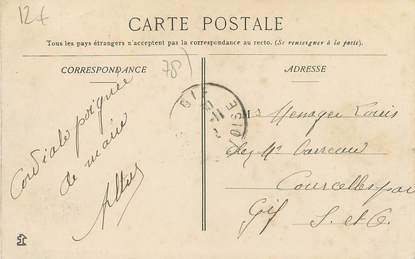 12€
CARTE POSTALE
Tous les pays étrangers n'acceptent pas la correspondance au recto. (Se renseigner à la poste).
CORRESPONDANCE
78
ADRESSE
Cordiale poignée
de main
GIF
OISE
M. Menager Louis
chez Mr
Courcelles par
Gif S. et O.